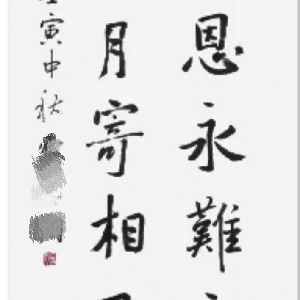 恩永難
月寄相
寅中秋